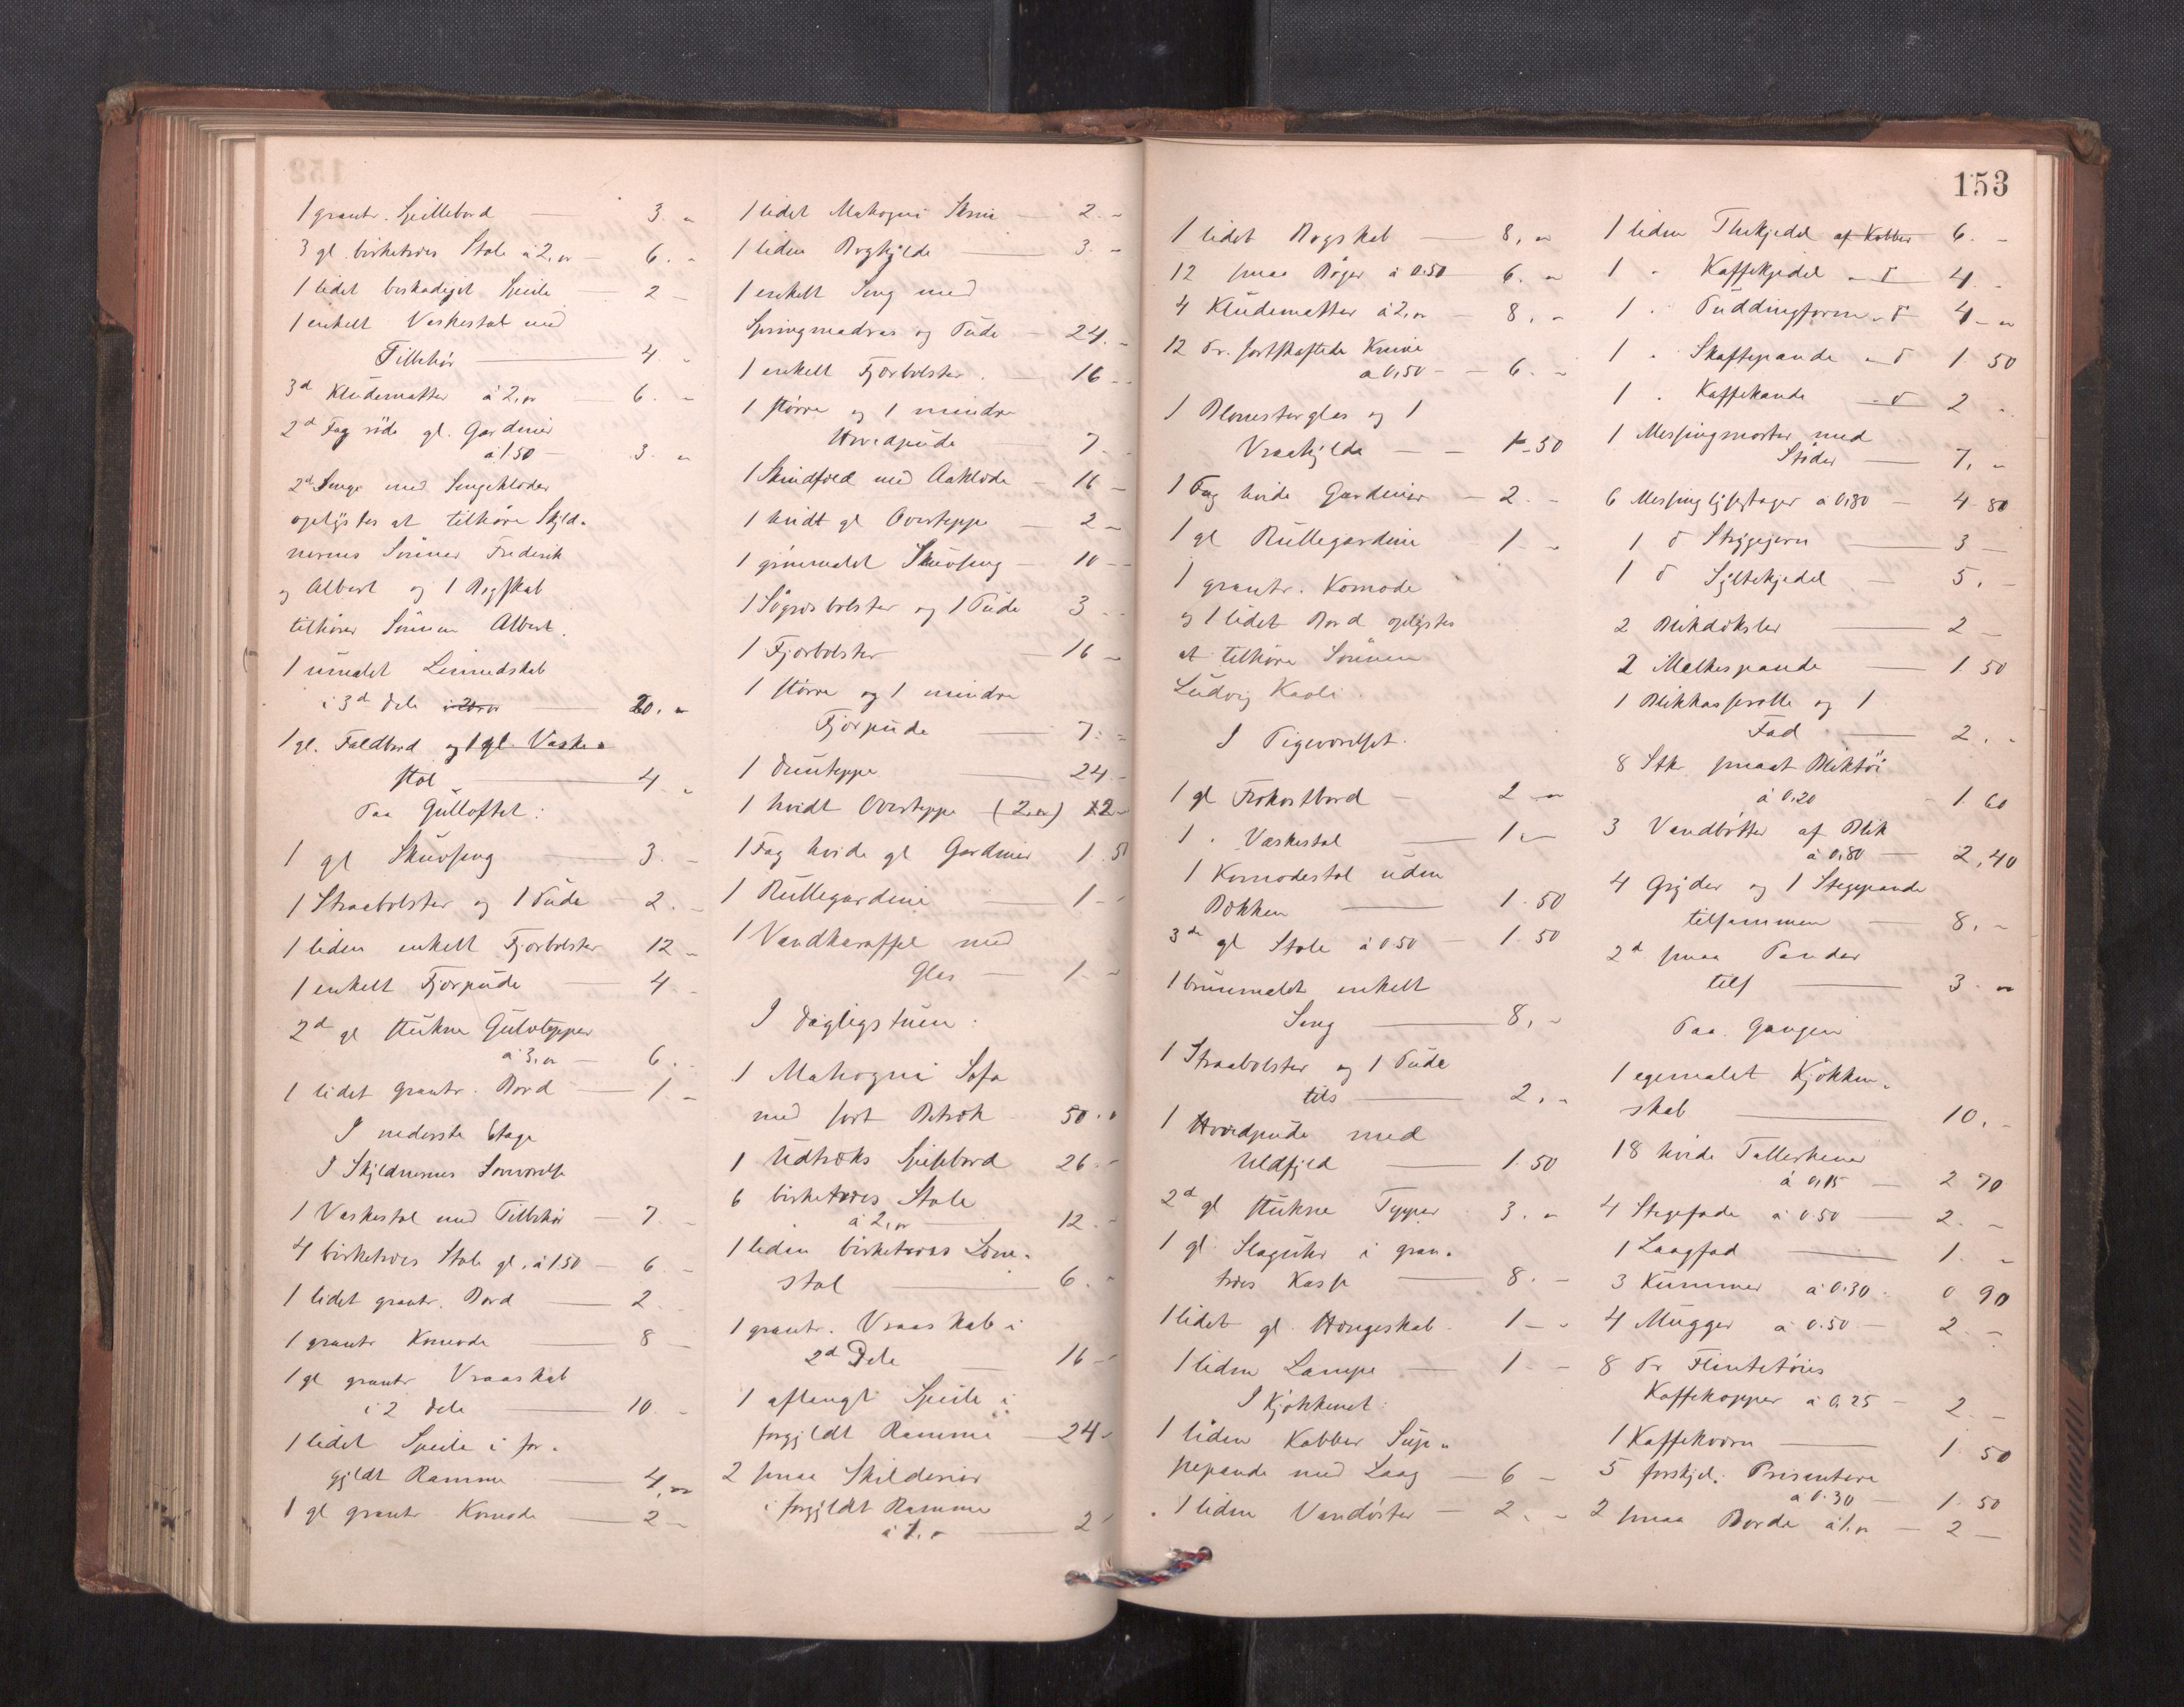 1 grantr. Spillebord — 3. „
3 gl. birketræes Stole à 2, „ — 6. „
1 lidet beskadiget Speile — 2 –
1 enkelt Vaskestol med
Tilbehør — 4. „
3d Kludematter à 2, „ — 6. „
2d Fag røde gl. Gardiner
à 1 50 — 3. „
2d Senge med Sengeklæder
oplystes at tilhøre Skyld-
nerens Sønner Frederik
og Albert og 1 Bogskab
tilhører Sønnen Albert.
1 umalet Linnedskab
i 3d Dele — 20. „
1 gl. Foldbord og 1 gl. Vaske-
stol — 4. „
Paa Gulloftet:
1 gl Skuvseng — 3. –
1 Straabolster og 1 Pude — 2. –
1 liden enkelt Fjørbolster 12 –
1 enkelt Fjørpude — 4. –
2d gl stukne Gulvtepper
à 3, „ — 6. –
1 lidet grantr. Bord — 1. –
I nederste Etage
I Skyldnerens Soveværelse
1 Vaskestol med Tilbehør — 7. –
4 birketræes Stole gl. à 1.50 — 6 –
1 lidet grantr. Bord — 2 –
1 grantr Komode — 8 –
1 gl grantr Vraaskab
i 2 Dele — 10. –
1 lidet Speile i for-
gyldt Ramme — 4, „
1 gl grantr Komode — 2 –
1 lidet Mahogni Skrin — 2. –
1 liden Boghylde — 3. –
1 enkelt Seng med
Springmadras og Pude — 24. –
1 enkelt Fjørbolster. — 16 –
1 større og 1 mindre
Hovedpude — 7. –
1 Skindfeld med Aaklæde — 16 –
1 hvidt gl Overteppe — 2 –
1 grønmalet Skuvseng — 10 –
1 Søgræsbolster og 1 Pude 3 –
1 Fjørbolster — 16 –
1 større og 1 mindre
Fjørpude — 7. –
1 Duunteppe — 24. –
1 hvidt Overteppe (2, „) 2 –
1 Fag hvide gl Gardiner 1. 5
1 Rullegardine — 1 –
1 Vandkaraffel med
Glas — 1. –
I Dagligstuen:
1 Mahogni Sofa
med sort Betræk 50. „
1 Udtræks Spisebord 26. –
6 birketræes Stole
à 2, „ — 12. –
1 liden birketræes Læne-
stol — 6. –
1 grantr. Vraaskab i
2d Dele — 16 –
1 aflangt Speile i
forgyldt Ramme — 24 –
2 smaa Skilderier
i forgyldt Ramme
à 1, „ — 2
153
1 lidet Bogskab — 8, „
12 smaa Bøger à 0.50 6. „
4 Kludematter à 2, „ — 8, –
12 Pr. sortskaftede Knive
à 0,50 — 6. –
1 Blomsterglas og 1
Vraahylde — 1 – 50
1 Fag hvide Gardiner — 2. –
1 gl Rullegardine — 1 – „
1 grantr. Komode
og 1 lidet Bord oplystes
at tilhøre Sønnen
Ludvig Kaoli.
I Pigeværelset.
1 gl Frokostbord — 2 – „
1 „ Vaskestol — 1. –
1 Komodestol uden
Bokken — 1. 50
3de gl Stole à 0 50 — 1. 50
1 brunmalet enkelt
Seng — 8, –
1 Straabolster og 1 Pude
tils — 2, –
1 Hovedpude med
Uldfyld — 1. 50
2d gl stukne Tepper 3. „
1 gl. Slaguhr i gran-
træes Kasse — 8. –
1 lidet gl. Hængeskab. 1 – „
1 liden Lampe — 1 –
I Kjøkkenet:
1 liden Kobber Sup-
pepande med Laag — 6 –
1 liden Vandøster — 2. –
1 liden Thekjedel af Kobber 6. –
1 „ Kaffekjedel „ d 4. –
1 „ Puddingform „ d 4 – „
1 „ Skaftepande „ d 1. 50
1 „ Kaffekande „ d 2 „
1 Messingmorter med
Støder — 7, „
6 Messinglysestager à 0,80 — 4 80
1 d Strygejern — 3 –
1 d Syltekjedel — 5. –
2 Blikdøksler — 2 –
2 Melkespande — 1. 50
1 Blikkasserolle og 1
Fad — 2. –
8 Stk smaat Bliktøi
à 0,20 — 1. 60
3 Vandbøtter af Blik
à 0,80 — 2, 40
4 Gryder og 1 Stegepande
tilsammen — 8. –
2d smaa Pander
tils — 3. „
Paa Gangen
1 egemalet Kjøkken-
skab — 10. –
18 hvide Tallerkener
à 0,15 — 2 70
4 Stegefade à 0.50 — 2. –
1 Laagfad — 1. –
3 Kummer à 0.30 . 0 90
4 Mugger à 0.50 — 2. –
8 Pr Flintetøies
Kaffekopper à 0,25 — 2. –
1 Kaffekværn — 1. 50
5 forskjel. Prisentere
à 0.30 — 1. 50
2 smaa Borde à 1, „ — 2 –